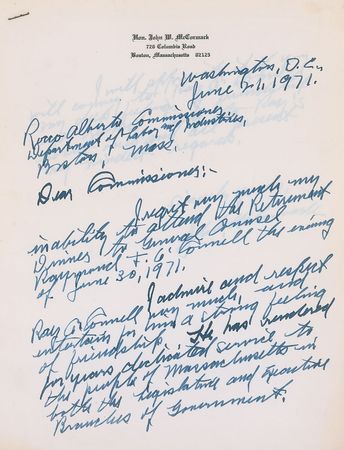 Hon. John W. McCormack
726 Columbia Road
Boston, Massachusetts 02125
Washington, D.C.,
June 21, 1971.
Roco Alberto Commissioner,
Department of Labor and Industries,
Boston, Mass.
Dear Commissioner:-
I regret very much my
inability to attend the Retirement
Dinner to General Counsel
Raymond F. O'Connell the evening
of June 30, 1971.
I admire and respect
Ray O'Connell very much, and
entertain for him a strong feeling
of friendship. He has rendered
for years dedicated service to
the people of Massachusetts in
both the Legislative and Executive
Branches of Government.